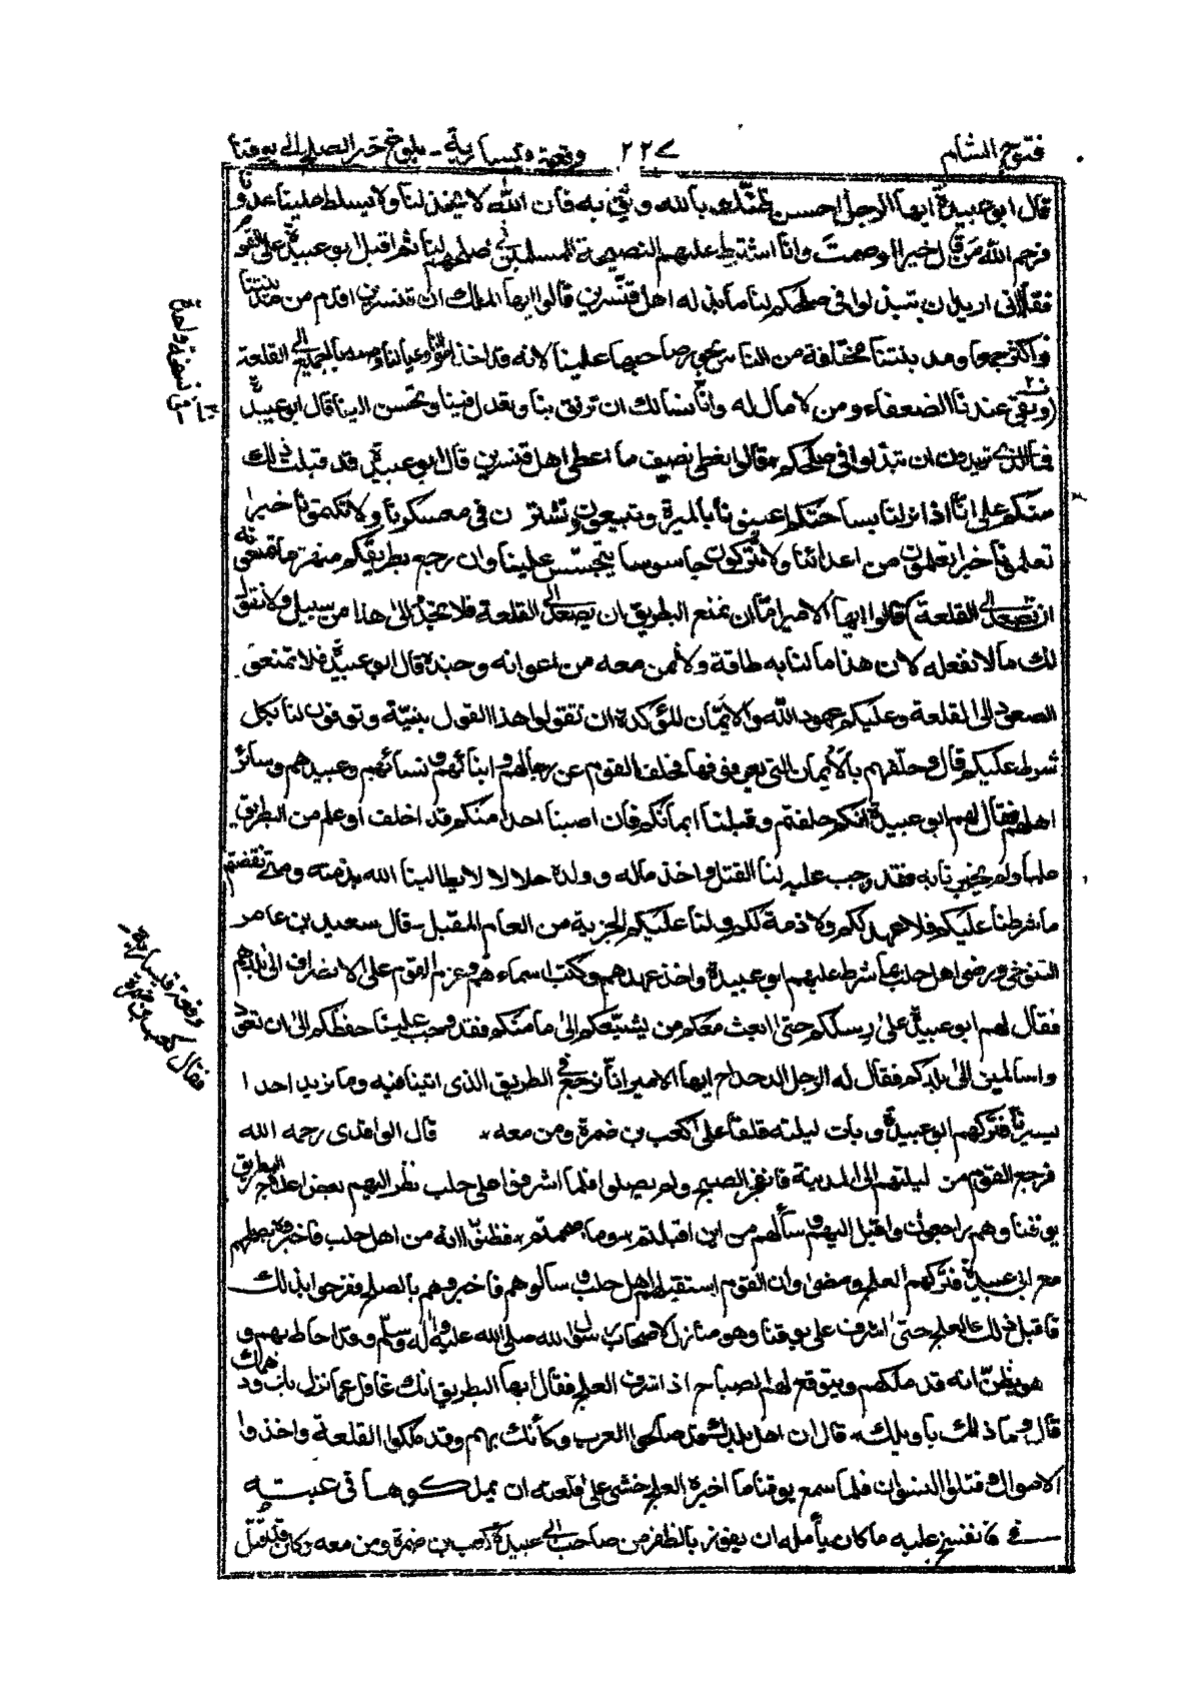 فتوح الشام ٢٢٧ وقعة قيسارية - بلوغ خبر الصلح الى يوقنا
قال ابو عبيدة ايها الرجل احسن ظنك بالله وثق به فان الله لا يخذلنا ولا يسلط علينا عدونا
فرحم الله من قال خيرا او صمت وانا اشترط عليهم النصيحة للمسلمين في صلحهم لنا ثم اقبل ابو عبيدة على القوم
فقال انى اريد ان تبذلوا فى صلحكم لنا ما بذل له اهل قنسرين قالوا ايها الملك ان قنسرين اقدم من مدينتنا
واكثر جمعا ومدينتنا مختلفة من الناس لجور صاحبها علينا لانه قد اخذ اموالنا وعيالنا وصعد بالجميع الى القلعة
(وبقى عندنا الضعفاء ومن لا مال له وانا نسالك ان ترفق بنا وتعدل فينا وتحسن الينا قال ابو عبيدة
فما الذى تريدون ان تبذلوا فى صلحكم قالوا نعطى نصف ما اعطى اهل قنسرين قال ابو عبيدة قد قبلت ذلك
منكم على انا اذا نزلنا بساحتكم اعينونا بالميرة وتبيعون وتشترون فى معسكرنا ولا تكتمونا خبرا
تعلمونه خبرا تعلمون من اعدائنا ولا تتركون جاسوسا يتجسس علينا وان رجع بطريقكم منهزما تمنعونه
ان يصعد الى القلعة) قالوا ايها الامير اما ان نمنع البطريق ان يصعد الى القلعة فلا نجد الى هذا من سبيل ولا نقول
لك ما لا نفعله لان هذا ما لنا به طاقة ولا بمن معه من اعوانه وجنده قال ابو عبيدة فلا تمنعوه
الصعود الى القلعة وعليكم عهود الله والايمان المؤكدة ان تقولوا هذا القول بنية وتوفون لنا بكل
شرط عليكم قال وحلفهم بالايمان التى يعرفونها فحلف القوم عن رجالهم وابنائهم ونسائهم وعبيدهم وسائر
اهلهم فقال لهم ابو عبيدة انكم حلفتم وقبلنا ايمانكم فان اصبنا احدا منكم قد اخلف او علم من البطريق
علما ولم يخبرنا به فقد وجب عليه لنا القتل واخذ ماله وولده حلالا لا يطالبنا الله بذمته ومتى نقضتم
ما شرطنا عليكم فلا عهد لكم ولا ذمة لكم ولنا عليكم الجزية من العام المقبل - قال سعيد بن عامر
التنوخى ورضى اهل حلب بما شرط عليهم ابو عبيدة واخذ عهدهم وكتب اسماءهم وعزم القوم على الانصراف الى بلدهم
فقال لهم ابو عبيدة على رسلكم حتى ابعث معكم من يشيعكم الى مامنكم فقد وجب علينا حفظكم الى ان تعودوا
سالمين الى بلدكم فقال له الرجل الدحداح ايها الامير انا نرجع فى الطريق الذى اتينا منه وما نريد احدا
يسير معنا فتركهم ابو عبيدة وبات ليلته قلقا على كعب بن ضمرة ومن معه قال الواقدى رحمه الله
فرجع القوم من ليلتهم الى المدينة فانفجر الصبح ولم يصلوا فلما اشرفوا على حلب نظر اليهم بعض اعلاج البطريق
يوقنا وهم راجعون واقبل اليهم وسألهم من اين اقبلتم وما فظن انه من اهل حلب فاخبروه بصلحهم
مع ابى عبيدة فتركهم العلج ومضى وان القوم استقبلهم اهل حلب وسالوهم فاخبروهم بالصلح ففرحوا بذلك
فاقبل ذلك العلج حتى اشرف على يوقنا وهو منازل لاصحاب رسول الله صلى الله عليه وآله وسلم وقد احاط بهم و
هو يظن انه قد ملكهم ويتوقع لهم الصباح اذ اشرف العلج فقال ايها البطريق انك غافل عما نزل بك ودهمك
قال وما ذلك يا ويلك قال ان اهل بلدك قد صالحوا العرب وكأنك بهم وقد ملكوا القلعة واخذوا
الاموال وقتلوا النسوان فلما سمع يوقنا ما اخبره العلج خشى على قلعته ان يملكوها فى غيبته
فانفسخ عليه ما كان يأمله ان يفوز بالظفر من صاحب ابى عبيدة كعب بن ضمرة ومن معه وكان قد قتل
من نسخة واحدة
فقال كعب بن ضمرة